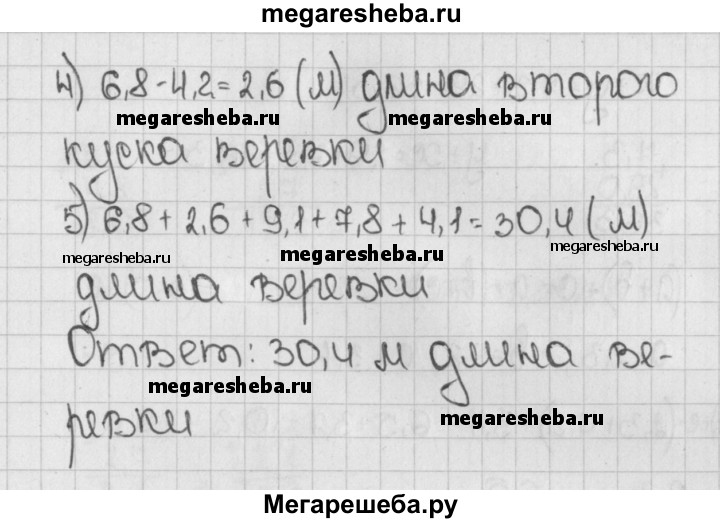 megaresheba.ru
4) 6,8-4,2=2,6 (м) длина второго
megaresheba.ru megaresheba.ru
куска веревки
5) 6,8+2,6+9,1+7,8+4,1=30,4 (м)
megaresheba.ru megaresheba.ru megaresheba.ru
длина веревки
Ответ: 30,4 м длина ве-
megaresheba.ru megaresheba.ru
ревки
Мегарешеба.ру